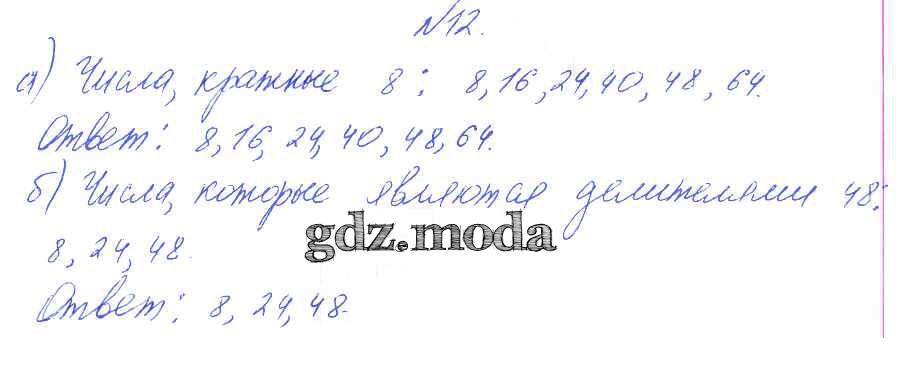 №12.
а) Числа, кратные 8: 8, 16, 24, 40, 48, 64.
Ответ: 8, 16, 24, 40, 48, 64.
б) Числа, которые являются делителями 48:
8, 24, 48.
gdz.moda
Ответ: 8, 24, 48.